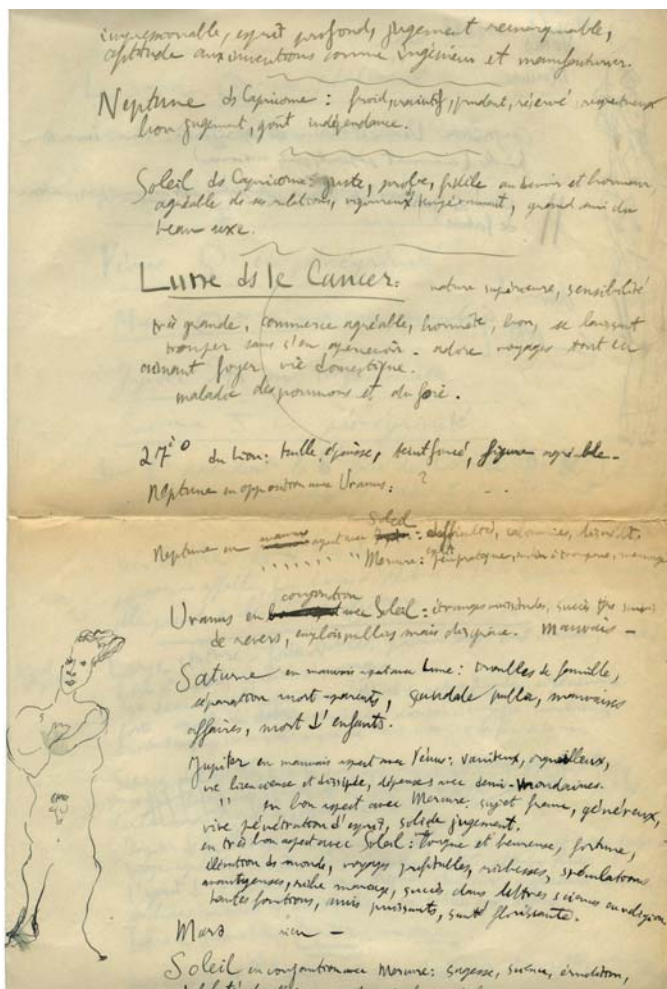 impressionable, esprit profond, jugement remarquable,
aptitude aux inventions comme ingénieur et manufacturier.
Neptune ds Capricorne : froid, craintif, prudent, réservé, respectueux
bon jugement, goût indépendance.
Soleil ds Capricorne : juste, probe, fidèle au devoir et honneur,
agréable de ses relations, vigoureux tempérament, grand ami du
beau sexe.
Lune ds le Cancer : nature supérieure, sensibilité
très grande, commerce agréable, honnête, bon, se laissant
tromper sans s'en apercevoir. adore voyages tout en
aimant foyer vie domestique.
maladie des poumons et du foie.
27° du Lion : taille épaisse, teint foncé, figure agréable -
Neptune en opposition avec Uranus : ?
Neptune en mauvais aspect avec Soleil : difficultés, calomnies, discrédit.
" " " " Mercure : esprit
Uranus en conjonction avec Soleil : étranges vicissitudes, succès
de revers, emplois publics mais disgrâce. Mauvais -
Saturne en mauvais aspect avec Lune : troubles de famille,
séparation mort parents, scandale public, mauvaises
affaires, mort d'enfants.
Jupiter en mauvais aspect avec Vénus : vaniteux, orgueilleux,
vie licencieuse et dissipée, dépenses avec demi-mondaines.
" en bon aspect avec Mercure : sujet franc, généreux,
vive pénétration d'esprit, solide jugement.
en très bon aspect avec Soleil : longue et heureuse, fortune,
du monde, voyages profitables, richesses, spéculations
avantageuses, riche mariage, succès dans lettres sciences ou religion
hautes fonctions, amis puissants, santé florissante.
Mars rien -
Soleil en conjonction avec Mercure : sagesse, science, érudition,